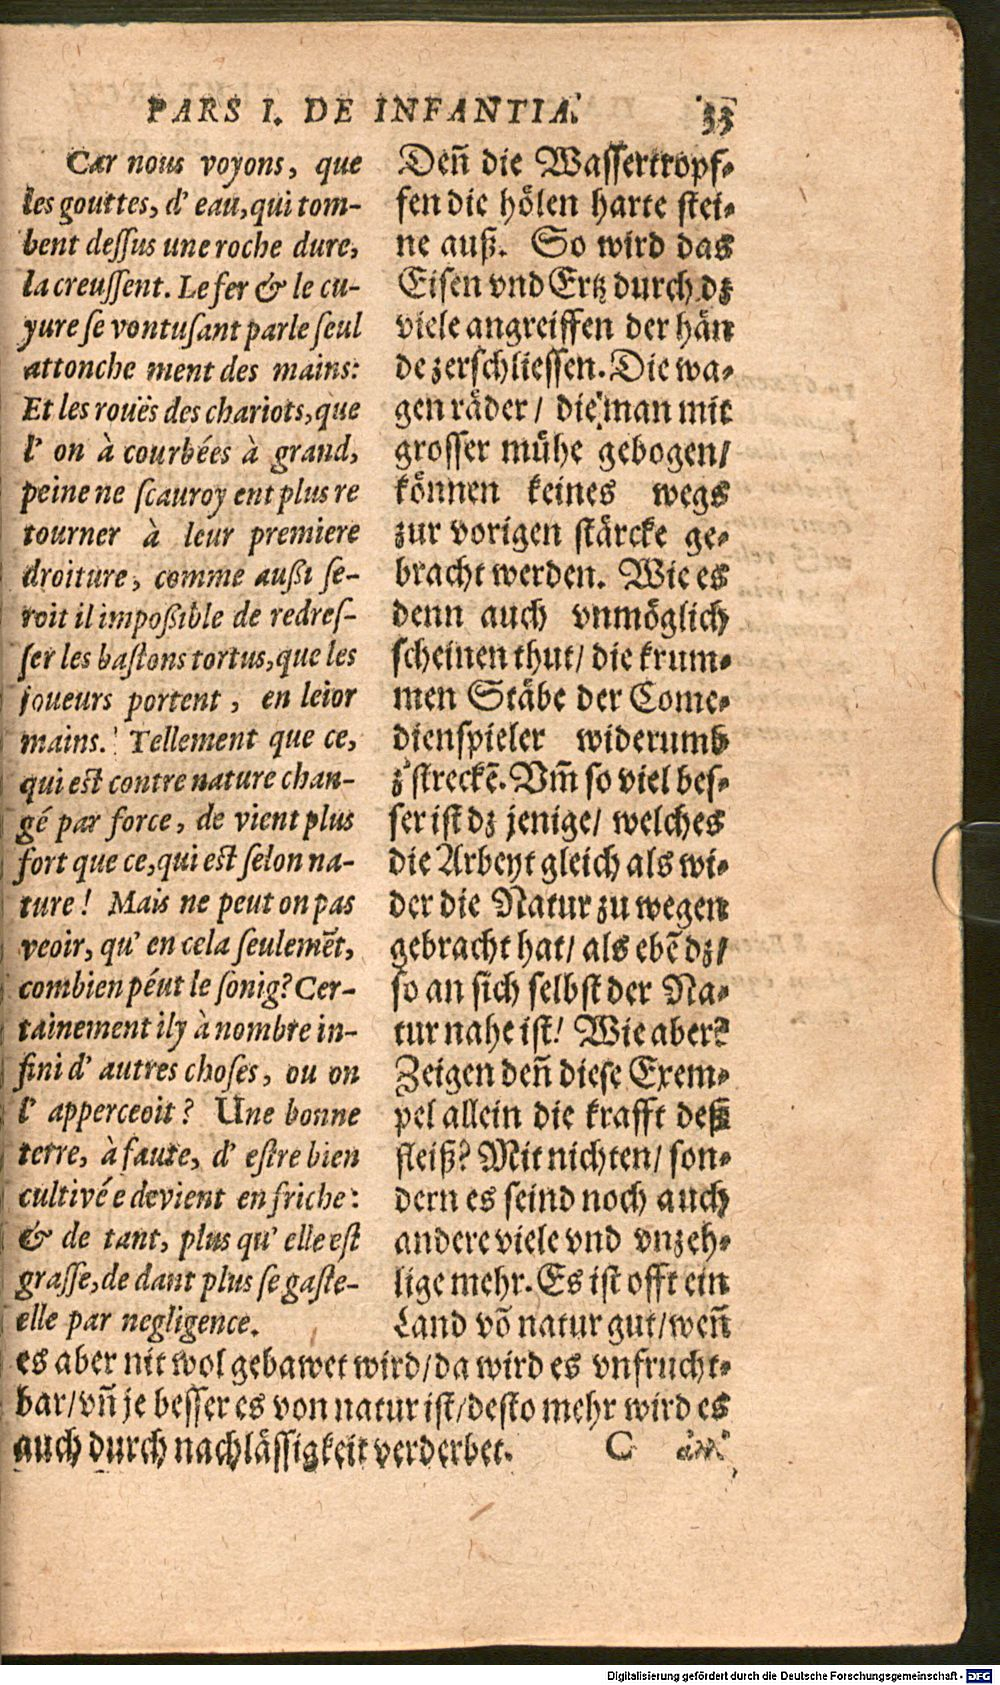 PARS I. DE INFANTIA. 33
Car nous voyons, que
les gouttes, d' eau, qui tom-
bent dessus une roche dure,
la creussent. Le fer & le cu-
yure se vontusant parle seul
attonche ment des mains:
Et les rouës des chariots, que
l' on à courbées à grand,
peine ne scauroy ent plus re
tourner à leur premiere
droiture, comme außi se-
roit il impoßible de redres-
ser les bastons tortus, que les
joueurs portent, en leior
mains. Tellement que ce,
qui est contre nature chan-
gé par force, de vient plus
fort que ce, qui est selon na-
ture! Mais ne peut on pas
veoir, qu' en cela seulemẽt,
combien péut le sonig? Cer-
tainement ily à nombre in-
fini d' autres choses, ou on
l' apperceoit? Une bonne
terre, à faute, d' estre bien
cultivé e devient en friche:
& de tant, plus qu' elle est
grasse, de dant plus se gaste-
elle par negligence.
Deñ die Wassertropf-
fen die hölen harte stei-
ne auß. So wird das
Eisen vnd Ertz durch dz
viele angreiffen der hän
de zerschliessen. Die wa-
gen räder / die man mit
grosser mühe gebogen/
können keines wegs
zur vorigen stärcke ge-
bracht werden. Wie es
denn auch vnmöglich
scheinen thut/ die krum-
men Stäbe der Come-
dienspieler widerumb
z'streckẽ. Vm̃ so viel bes-
ser ist dz jenige/ welches
die Arbeyt gleich als wi-
der die Natur zu wegen
gebracht hat/ als ebẽ dz/
so an sich selbst der Na-
tur nahe ist! Wie aber?
Zeigen deñ diese Exem-
pel allein die krafft deß
fleiß? Mit nichten/ son-
dern es seind noch auch
andere viele vnd vnzeh-
lige mehr. Es ist offt ein
Land võ natur gut/ weñ
es aber nit wol gebawet wird/ da wird es vnfrucht-
bar/ vñ je besser es von natur ist/ desto mehr wird es
auch durch nachlässigkeit verderbet. C
Digitalisierung gefördert durch die Deutsche Forschungsgemeinschaft - DFG